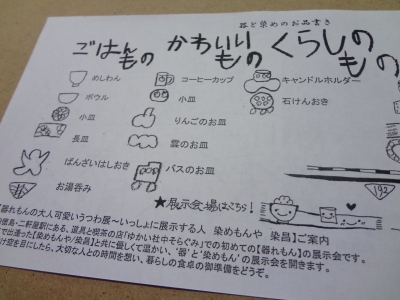 器と染めのお品書き
ごはんもの かわいいもの くらしのもの
めしわん
ボウル
小皿
長皿
ばんざいはしおき
お湯呑み
コーヒーカップ
小皿
りんごのお皿
雲のお皿
バスのお皿
キャンドルホルダー
石けんおき
192
★展示会場はこちら!
【器れもんの大人可愛いうつわ展~いっしょに展示する人 染めもんや 染昌】ご案内
徳島・二軒屋駅にある、道具と喫茶の店「ゆかい社中そらぐみ」での初めての【器れもん】の展示会です。
で出逢った【染めもんや/染昌】と共に優しくて温かい、“器”と‘染めもん’の展示会を開きます。
け空を目にしたら、大切な人との時間を想い、暮らしの食卓の御準備をどうぞ。